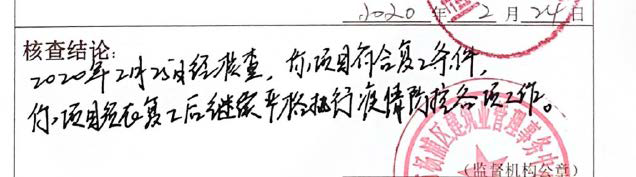 2020年2月24日
核查结论：
2020年2月25日经核查，你项目符合复工条件，
你项目须在复工后继续严格执行疫情防控各项工作。
杨浦区建筑业管理事务中
（监督机构公章）